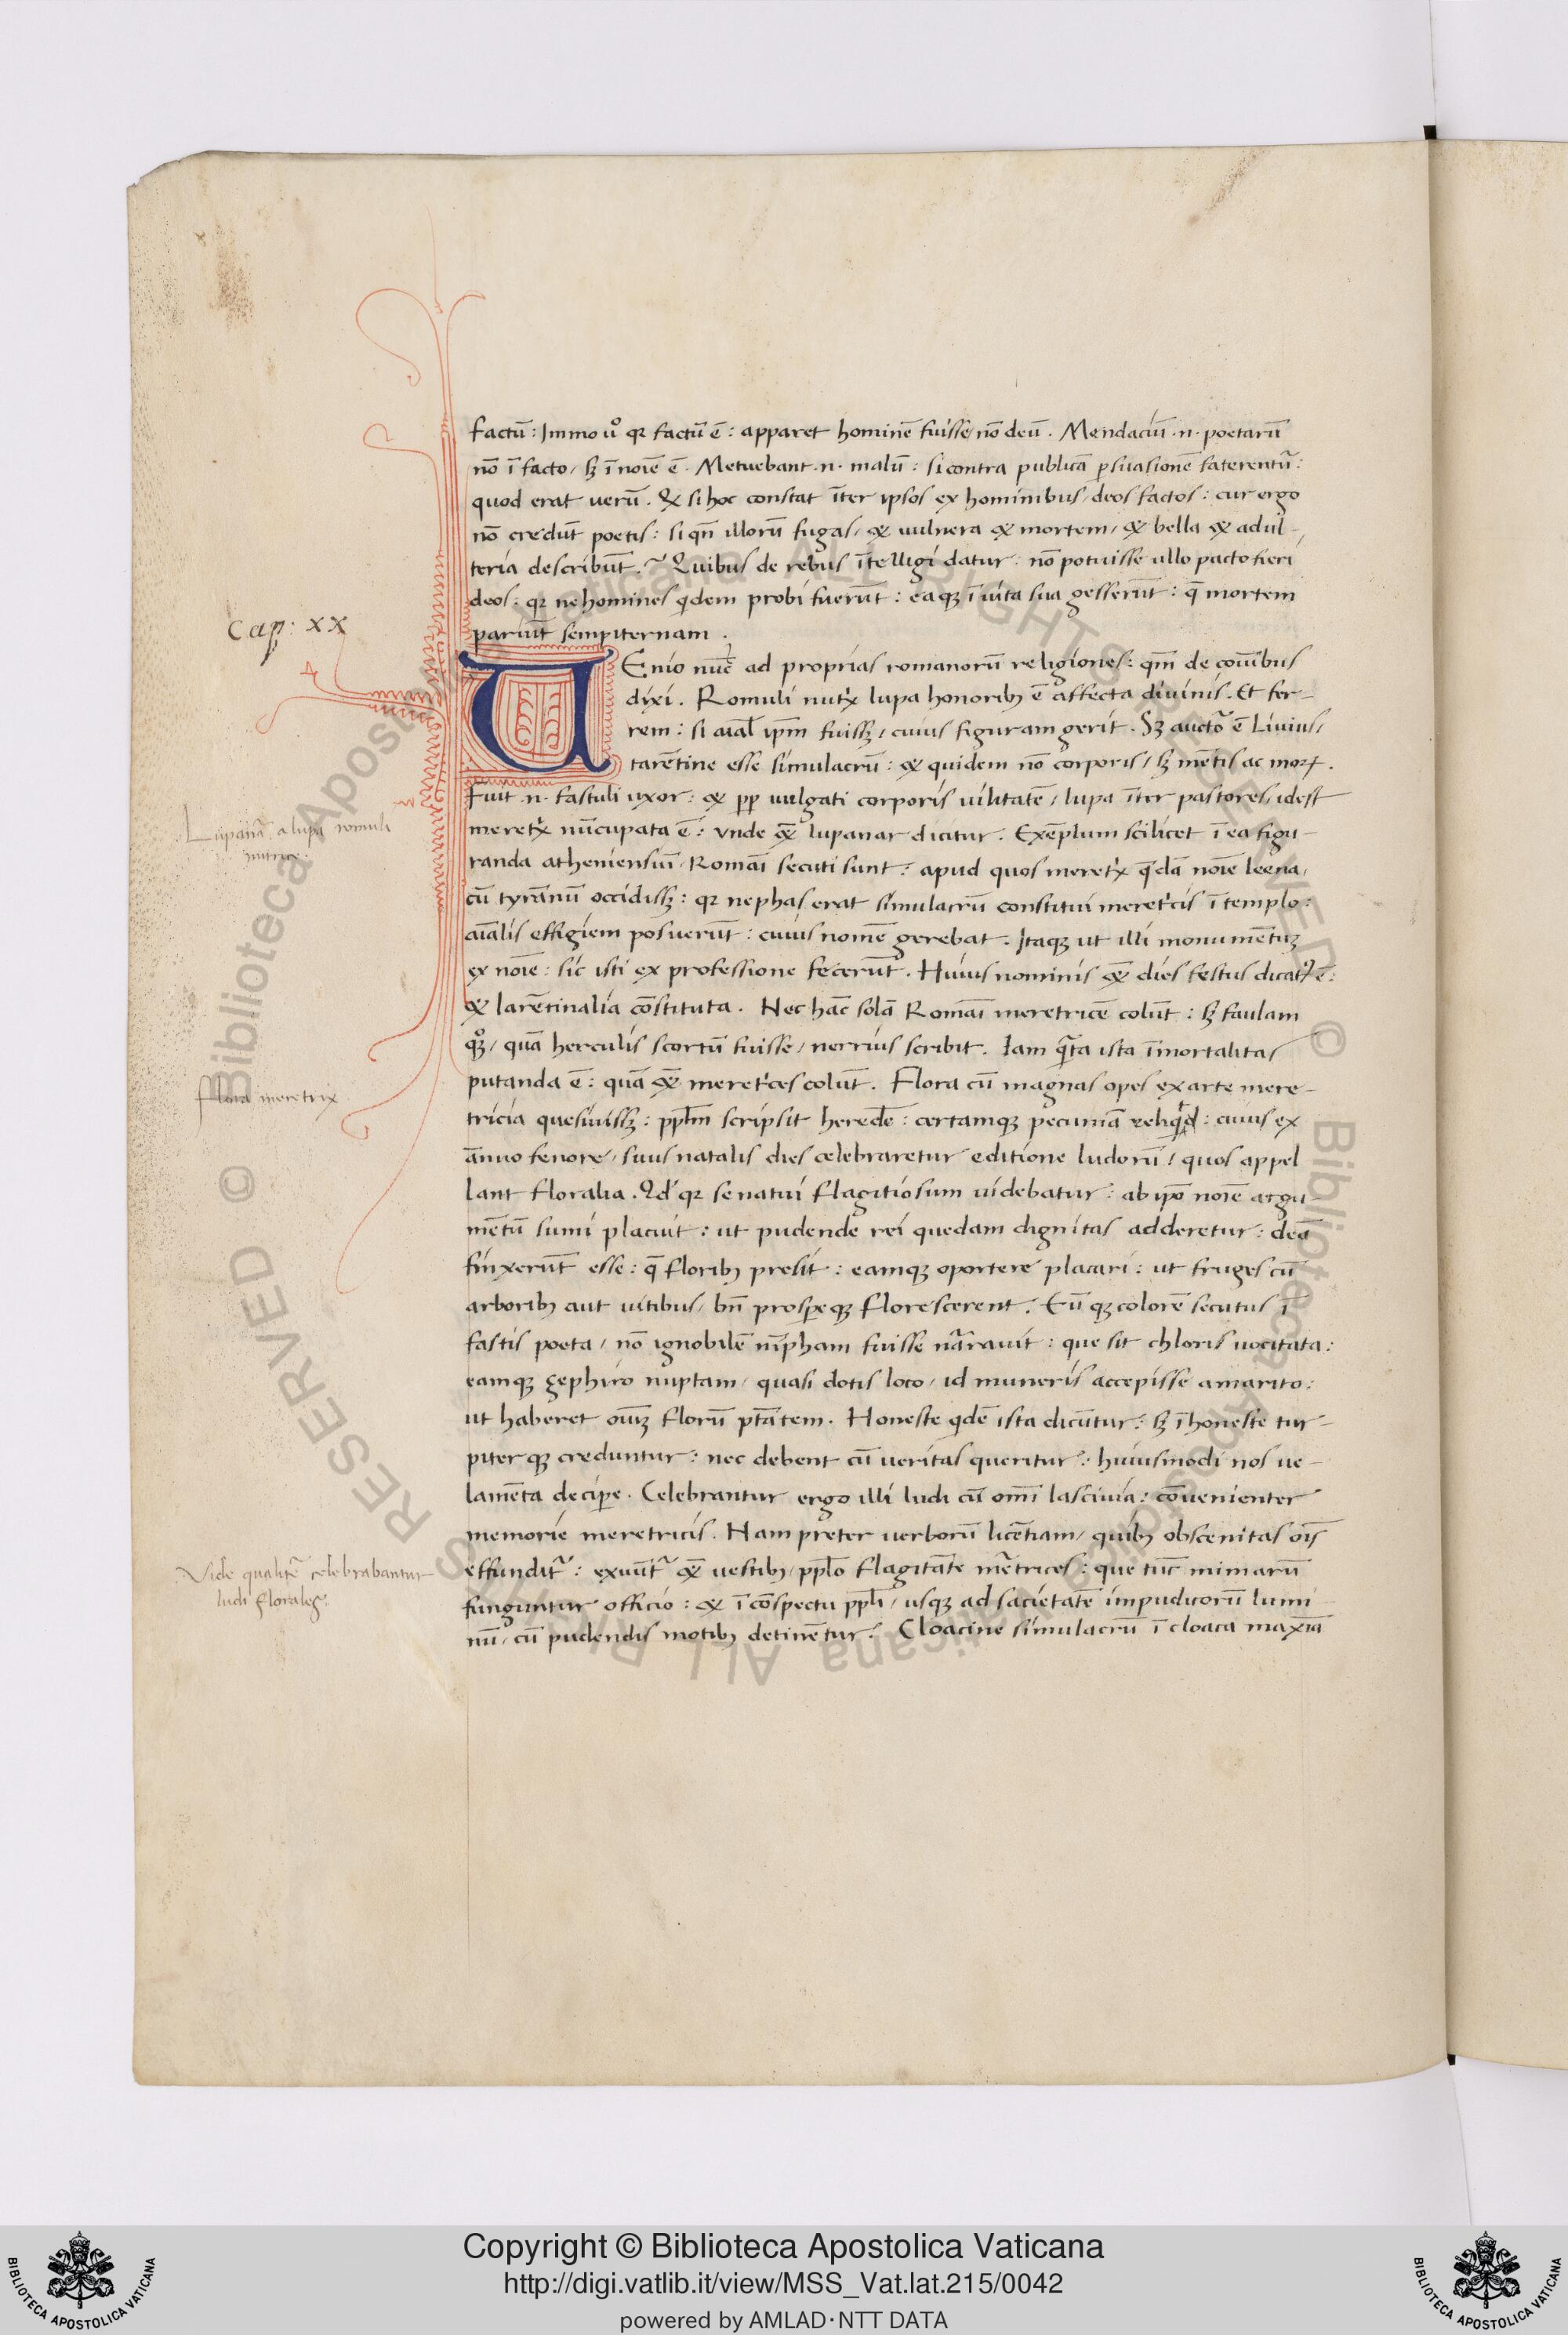 factū: Immo uͦ qꝛ factū ē: apparet hominē fuisse/ nō deū. Mendaciū .n. poetarū
nō ī facto/ sꝫ ī noīe ē. Metuebant .n. malū: si contra publicā ꝑsuasionē faterentur̃:
quod erat uerū. & si hoc constat īter ipsos ex hominibus/ deos factos: cur ergo
nō credūt poetis: si qñ illorū fugas/ & uulnera & mortem/ & bella & adul-
teria describūt.̃ Quibus de rebus ītelligi datur: nō potuisse ullo pacto fieri
deos: qꝛ ne homines qdem probi fuerūt: eaqꝫ ī uita sua gesserūt: q̄ mortem
pariūt sempiternam.
Cap: XX
UEnio nūc ad proprias romanorū religiones: qm̄ de coīubus
dixi. Romuli nutx̍ lupa honoribꝫ ē affecta diuinis. Et fer-
rem: si aīal ip̄m fuissꝫ/ cuius figuram gerit. Sꝫ auctor̃ ē Liuius/
tarētine esse simulacrū: & quidem nō corporis/ sꝫ mētis ac moꝝ.
Fuit .n. fastuli uxor: & ꝓꝑ uulgati corporis uilitatē/ lupa īter pastores/ idest
meretx̍ nūcupata ē: vnde &̄ lupanar dicitur. Exēplum scilicet ī ea figu-
Lupanar̃ a lupa romuli
nutrice.
randa atheniensiū/ Romāi secuti sunt: apud quos meretx̍ q̄dā noīe leena/
cū tyrānū occidissꝫ: qꝛ nephas erat simulacrū constitui meret̍cis ī templo:
aīalis effigiem posuerūt: cuius nomē gerebat. Itaqꝫ ut illi monumētuꝫ
ex noīe: sic isti ex professione fecerūt. Huius nominis &̄ dies festus dicatꝰ ē:
& larētinalia cōstituta. Nec hāc solā Romāi meretricē colūt: sꝫ faulam
qͦꝫ/ quā herculis scortū fuisse/ uerrius scribit. Iam q̄ta ista īmortalitas
putanda ē: quā &̄ meret̍ces colūt. Flora cū magnas opes ex arte mere-
Flora meretrix
tricia quesiuissꝫ: pplm̄ scripsit heredē: certamqꝫ pecuniā reliqd: cuius ex
ānuo fenore/ suus natalis dies celebraretur editione ludorū/ quos appel
lant floralia. Qd̓ qꝛ senatui flagitiosum uidebatur: ab ip̄o noīe argu-
mētū sumi placuit: ut pudende rei quedam dignitas adderetur: deā
finxerūt esse: q̄ floribꝫ presit: eamqꝫ oportere placari: ut fruges cū
arboribꝫ aut uitibus/ bn̄ prospeqꝫ florescerent. Eū qꝫ colorē secutus ī
fastis poeta/ nō ignobilē nīpham fuisse nar̃rauit: que sit chloris uocitata:
eamqꝫ zephiro nuptam/ quasi dotis loco/ id muneris accepisse amarito:
ut haberet oīuꝫ florū ptātem. Honeste qdē ista dicūtur: sꝫ īhoneste tur-
piterqꝫ creduntur: nec debent cū ueritas queritur: huiusmodi nos ue-
lamēta decipe. Celebrantur ergo illi ludi cū omī lasciuia: cōuenienter
memorie meretricis. Nam preter uerborū licētiam/ quibꝫ obscenitas oīs
effundit̃: exuūt̃ &̄ uestibꝫ/ pplo flagitāte mer̃trices: que tūc mimarū
Vide qualit̄ celebrabantur
ludi florales.
funguntur officio: & ī cōspectu ppli/ usqꝫ ad sacietatē impudicorū lumi
nū/ cū pudendis motibꝫ detinētur. Cloacine simulacrū ī cloaca maxīa
Copyright © Biblioteca Apostolica Vaticana
http://digi.vatlib.it/view/MSS_Vat.lat.215/0042
powered by AMLAD·NTT DATA